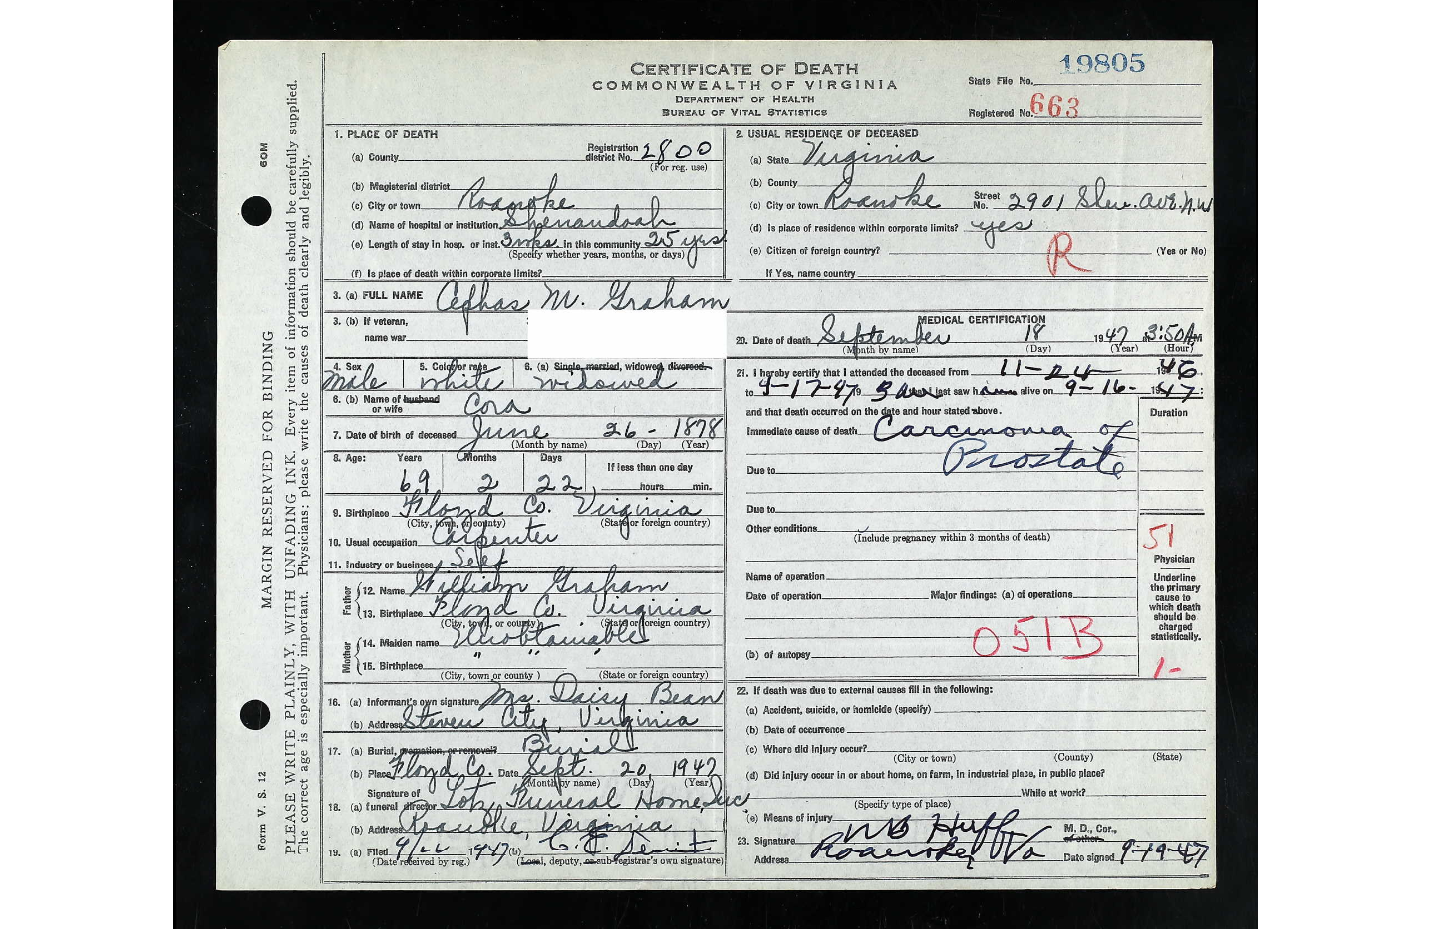 19805
CERTIFICATE OF DEATH
COMMONWEALTH OF VIRGINIA
DEPARTMENT OF HEALTH
BUREAU OF VITAL STATISTICS
State File No.
Registered No. 663
1. PLACE OF DEATH
(a) County Registration district No. 2800
(For reg. use)
(b) Magisterial district
(c) City or town Roanoke
(d) Name of hospital or institution Shenandoah
(e) Length of stay in hosp. or inst. 3 wks in this community 25 yrs
(Specify whether years, months, or days)
(f) Is place of death within corporate limits?
2. USUAL RESIDENCE OF DECEASED
(a) State Virginia
(b) County
(c) City or town Roanoke Street No. 2901 Shen. Ave. N.W
(d) Is place of residence within corporate limits? yes
(e) Citizen of foreign country? (Yes or No)
R
If Yes, name country
3. (a) FULL NAME Cephas M. Graham
3. (b) If veteran,
name war
4. Sex 5. Color or race 6. (a) Single, married, widowed, divorced
Male White Widowed
6. (b) Name of husband or wife Cora
7. Date of birth of deceased June 26 - 1878
(Month by name) (Day) (Year)
8. Age: Years Months Days If less than one day
69 2 22 hours min.
9. Birthplace Floyd Co. Virginia
(City, town, or county) (State or foreign country)
10. Usual occupation Carpenter
11. Industry or business Self
Father 12. Name William Graham
13. Birthplace Floyd Co. Virginia
(City, town, or county) (State or foreign country)
Mother 14. Maiden name Unobtainable
15. Birthplace " " "
(City, town or county) (State or foreign country)
16. (a) Informant's own signature Daisy Bean
(b) Address City, Virginia
17. (a) Burial, cremation, or removal? Burial
(b) Place Floyd Co. Date Sept. 20, 1947
(Month by name) (Day) (Year)
18. (a) Signature of funeral director Lotz Funeral Home, Inc
(b) Address Roanoke, Virginia
19. (a) Filed 1947 (b)
(Date received by reg.) (Local, deputy, or sub-registrar's own signature)
MEDICAL CERTIFICATION
20. Date of death September 18 1947 3:50 AM
(Month by name) (Day) (Year) (Hour)
21. I hereby certify that I attended the deceased from 11-24 1946
to 9-17-47 that I last saw h alive on 9-16- 1947;
and that death occurred on the date and hour stated above. Duration
Immediate cause of death Carcinoma of
Prostate
Due to
Due to
Other conditions
(Include pregnancy within 3 months of death)
51
Physician
Underline
the primary
cause to
which death
should be
charged
statistically.
Name of operation
Date of operation Major findings: (a) of operations
051B
(b) of autopsy
1-
22. If death was due to external causes fill in the following:
(a) Accident, suicide, or homicide (specify)
(b) Date of occurrence
(c) Where did injury occur?
(City or town) (County) (State)
(d) Did injury occur in or about home, on farm, in industrial place, in public place?
While at work?
(Specify type of place)
(e) Means of injury
23. Signature Huff M. D., Cor., or other
Address Roanoke, Va Date signed 9-19-47
60M
MARGIN RESERVED FOR BINDING
Form V. S. 12
PLEASE WRITE PLAINLY, WITH UNFADING INK. Every item of information should be carefully supplied.
The correct age is especially important. Physicians; please write the causes of death clearly and legibly.